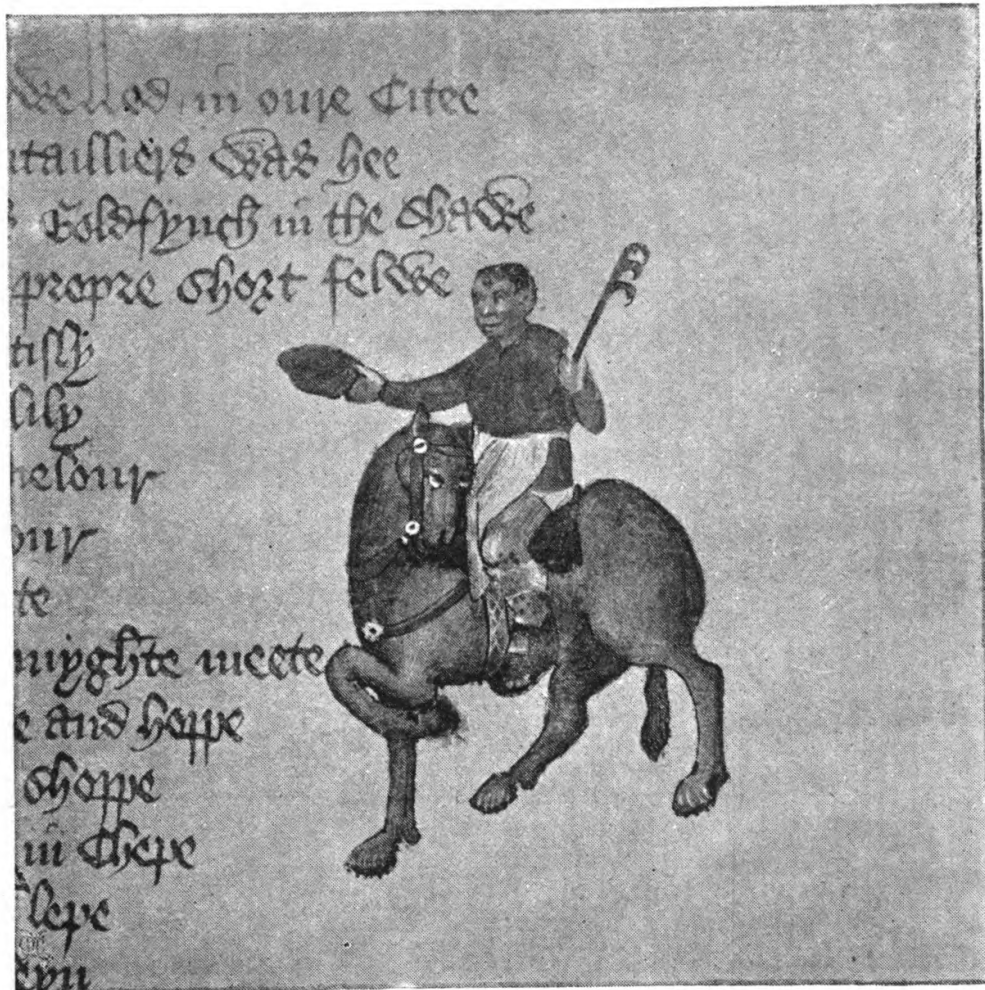 welled in oure Citee
itailliers was hee
s Goldfynch in the shawe
propre short felawe
tisly
lily
uelour
our
te
myghte meete
e and hoppe
shoppe
in Chepe
lepe
eyn